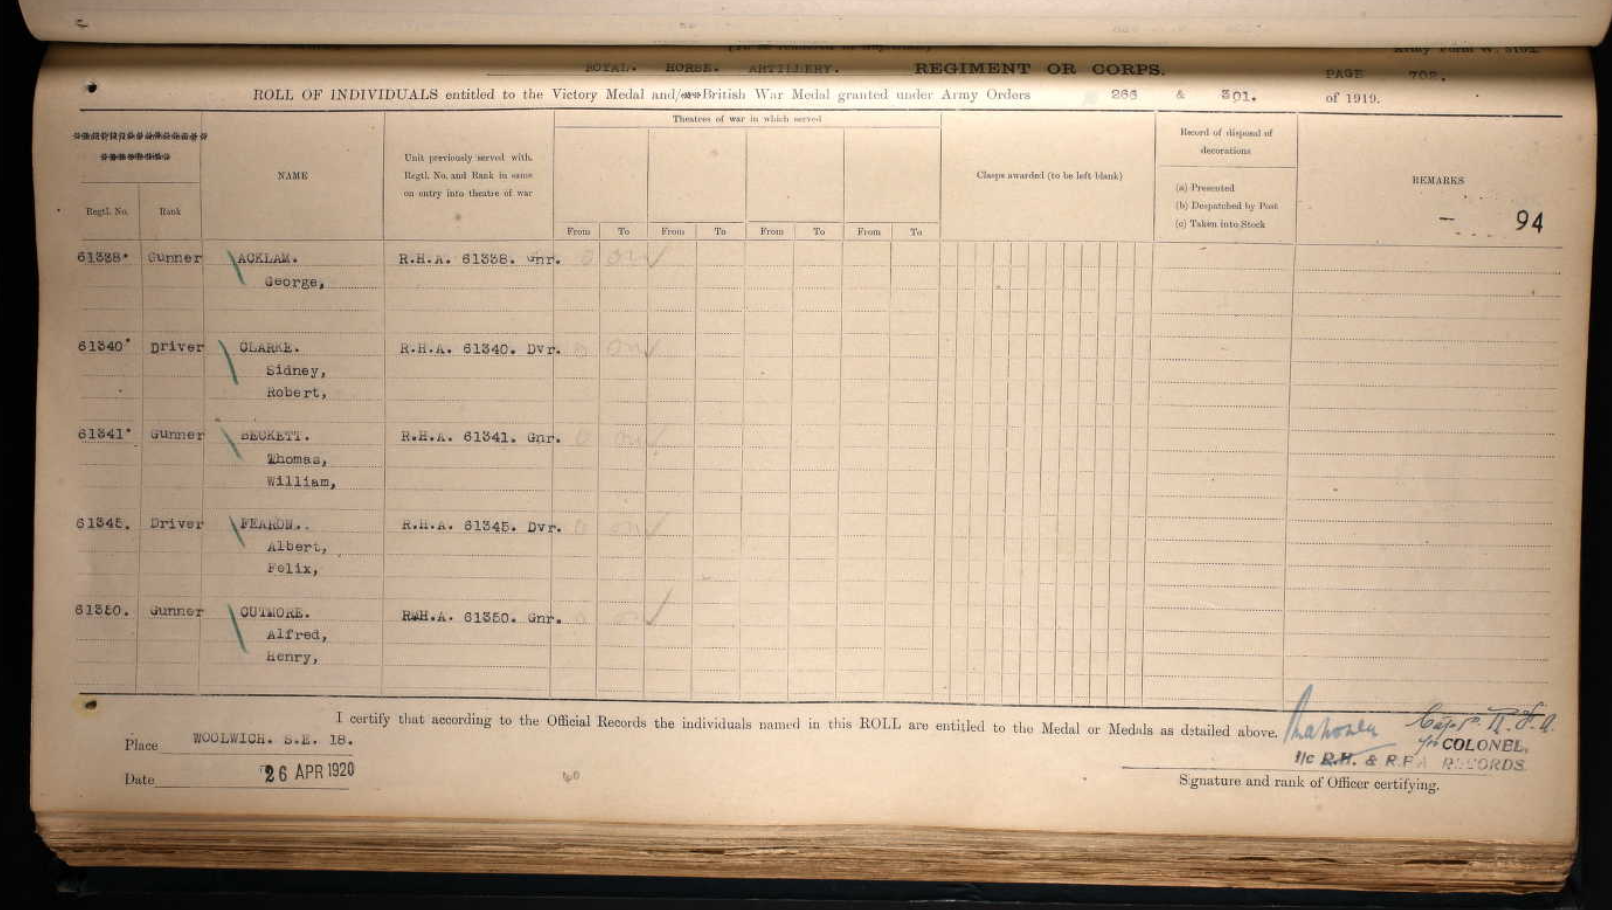 Army Form W. 5102.
ROYAL. HORSE. ARTILLERY. REGIMENT OR CORPS.
PAGE 702.
ROLL OF INDIVIDUALS entitled to the Victory Medal and/or British War Medal granted under Army Orders 266 & 301. of 1919.
Theatres of war in which served
Record of disposal of
decorations
Unit previously served with.
Regtl. No. and Rank in same
on entry into theatre of war
NAME
Clasps awarded (to be left blank)
REMARKS
(a) Presented
(b) Despatched by Post
(c) Taken into Stock
94
Regtl. No. Rank
From To From To From To From To
61338. Gunner ACKLAM. R.H.A. 61338. Gnr.
George,
61340 Driver CLARKE. R.H.A. 61340. Dvr.
Sidney,
Robert,
61341 Gunner BECKETT. R.H.A. 61341. Gnr.
Thomas,
William,
61345. Driver FEARON. R.H.A. 61345. Dvr.
Albert,
Felix,
61350. Gunner CUTMORE. R.H.A. 61350. Gnr.
Alfred,
Henry,
I certify that according to the Official Records the individuals named in this ROLL are entitled to the Medal or Medals as detailed above.
Capt. R.F.A.
Place WOOLWICH. S.E. 18.
for COLONEL,
I/c R.H. & R.F.A RECORDS.
Date 26 APR 1920
Signature and rank of Officer certifying.